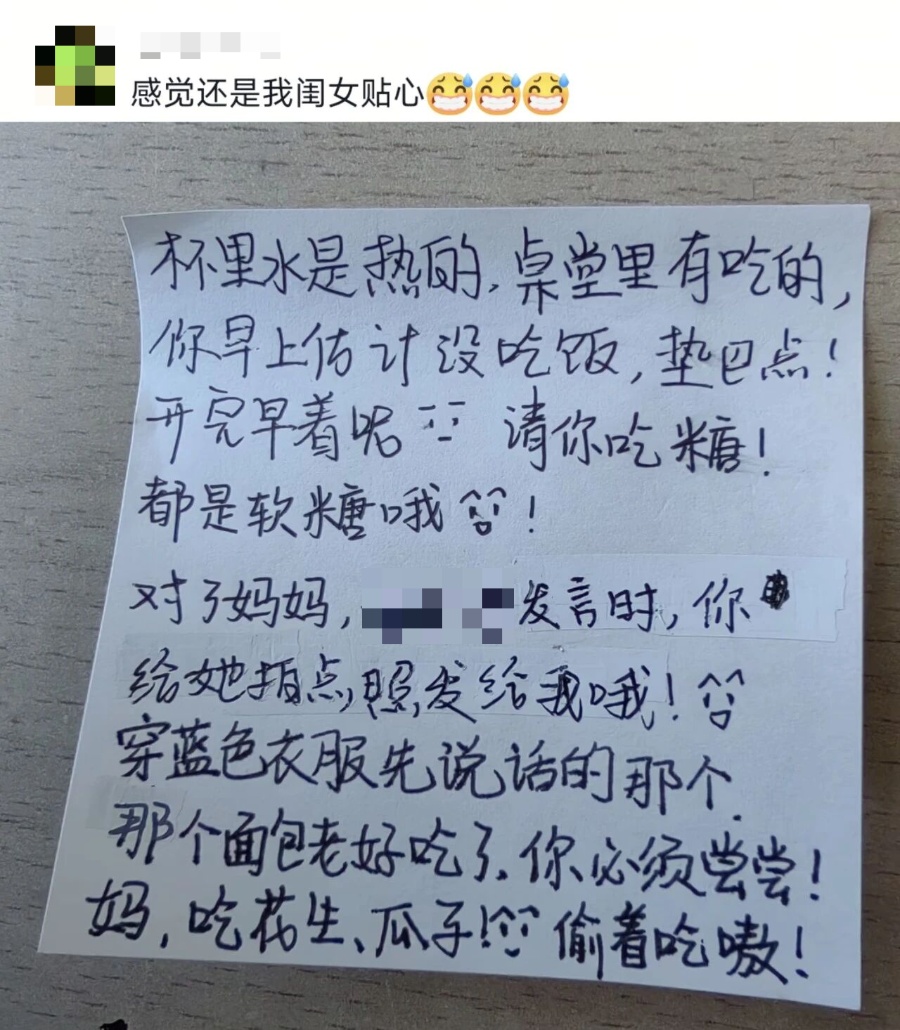 感觉还是我闺女贴心😅😅😅
杯里水是热的,桌堂里有吃的,
你早上估计没吃饭,垫巴点!
开完早着呢 请你吃糖!
都是软糖哦!
对了妈妈, 发言时,你
给她拍点照发给我哦!
穿蓝色衣服先说话的那个.
那个面包老好吃了.你必须尝尝!
妈,吃花生、瓜子!偷着吃嗷!